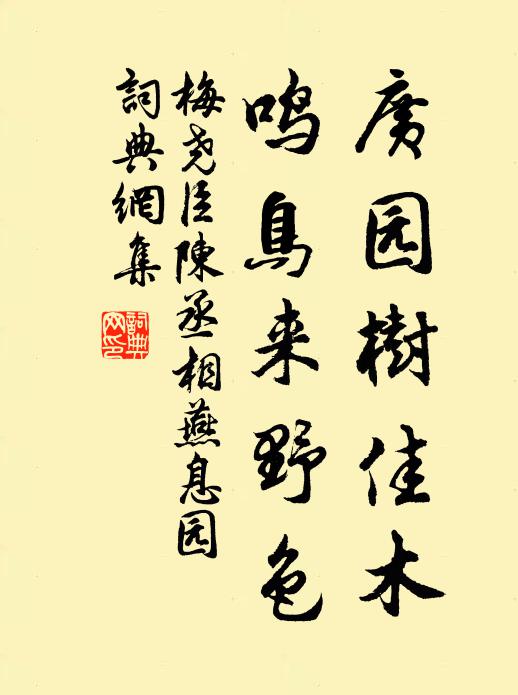 廣园樹佳木
鸣鳥来野色
梅尧臣陳丞相燕息园
詞典網集
詞典网印